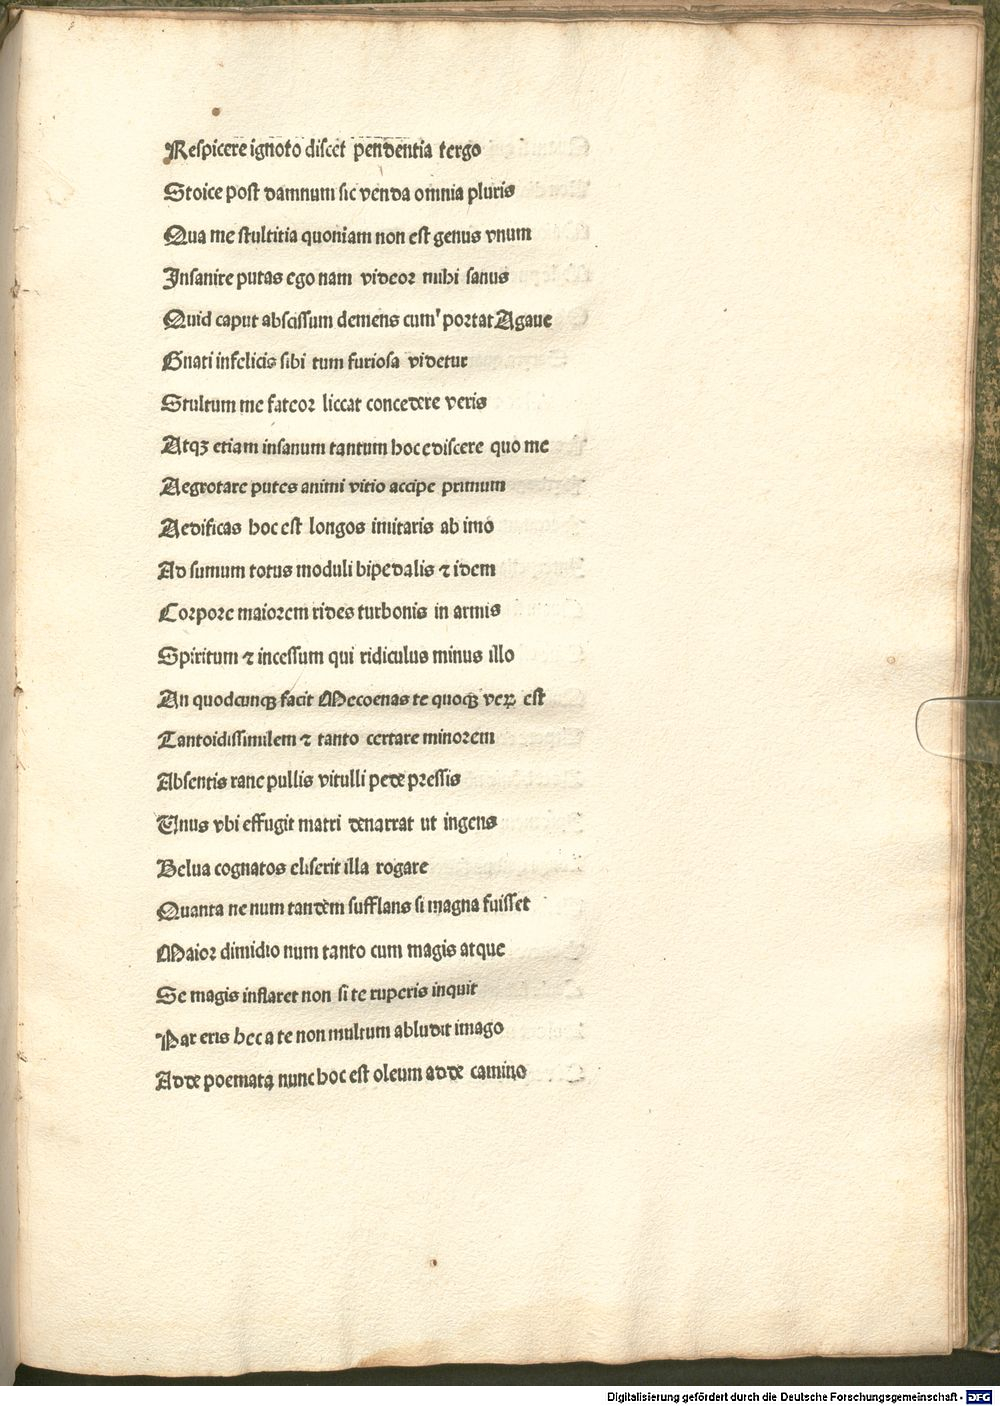 Respicere ignoto discet pendentia tergo
Stoice post damnum sic venda omnia pluris
Qua me stultitia quoniam non est genus vnum
Insanire putas ego nam videor mihi sanus
Quid caput abscissum demens cum portat Agaue
Gnati infelicis sibi tum furiosa videtur
Stultum me fateor liceat concedere veris
Atqꝫ etiam insanum tantum hoc ediscere quo me
Aegrotare putes animi vitio accipe primum
Aedificas hoc est longos imitaris ab imo
Ad sumum totus moduli bipedalis ⁊ idem
Corpore maiorem rides turbonis in armis
Spiritum ⁊ incessum qui ridiculus minus illo
An quodcunqꝫ facit Mecoenas te quoqꝫ veꝝ est
Tantoidissimilem ⁊ tanto certare minorem
Absentis rane pullis vitulli pede pressis
Unus vbi effugit matri denarrat ut ingens
Belua cognatos eliserit illa rogare
Quanta ne num tandem sufflans si magna fuisset
Maior dimidio num tanto cum magis atque
Se magis inflaret non si te ruperis inquit
Par eris hec a te non multum abludit imago
Adde poemata nunc hoc est oleum adde camino
Digitalisierung gefördert durch die Deutsche Forschungsgemeinschaft - DFG